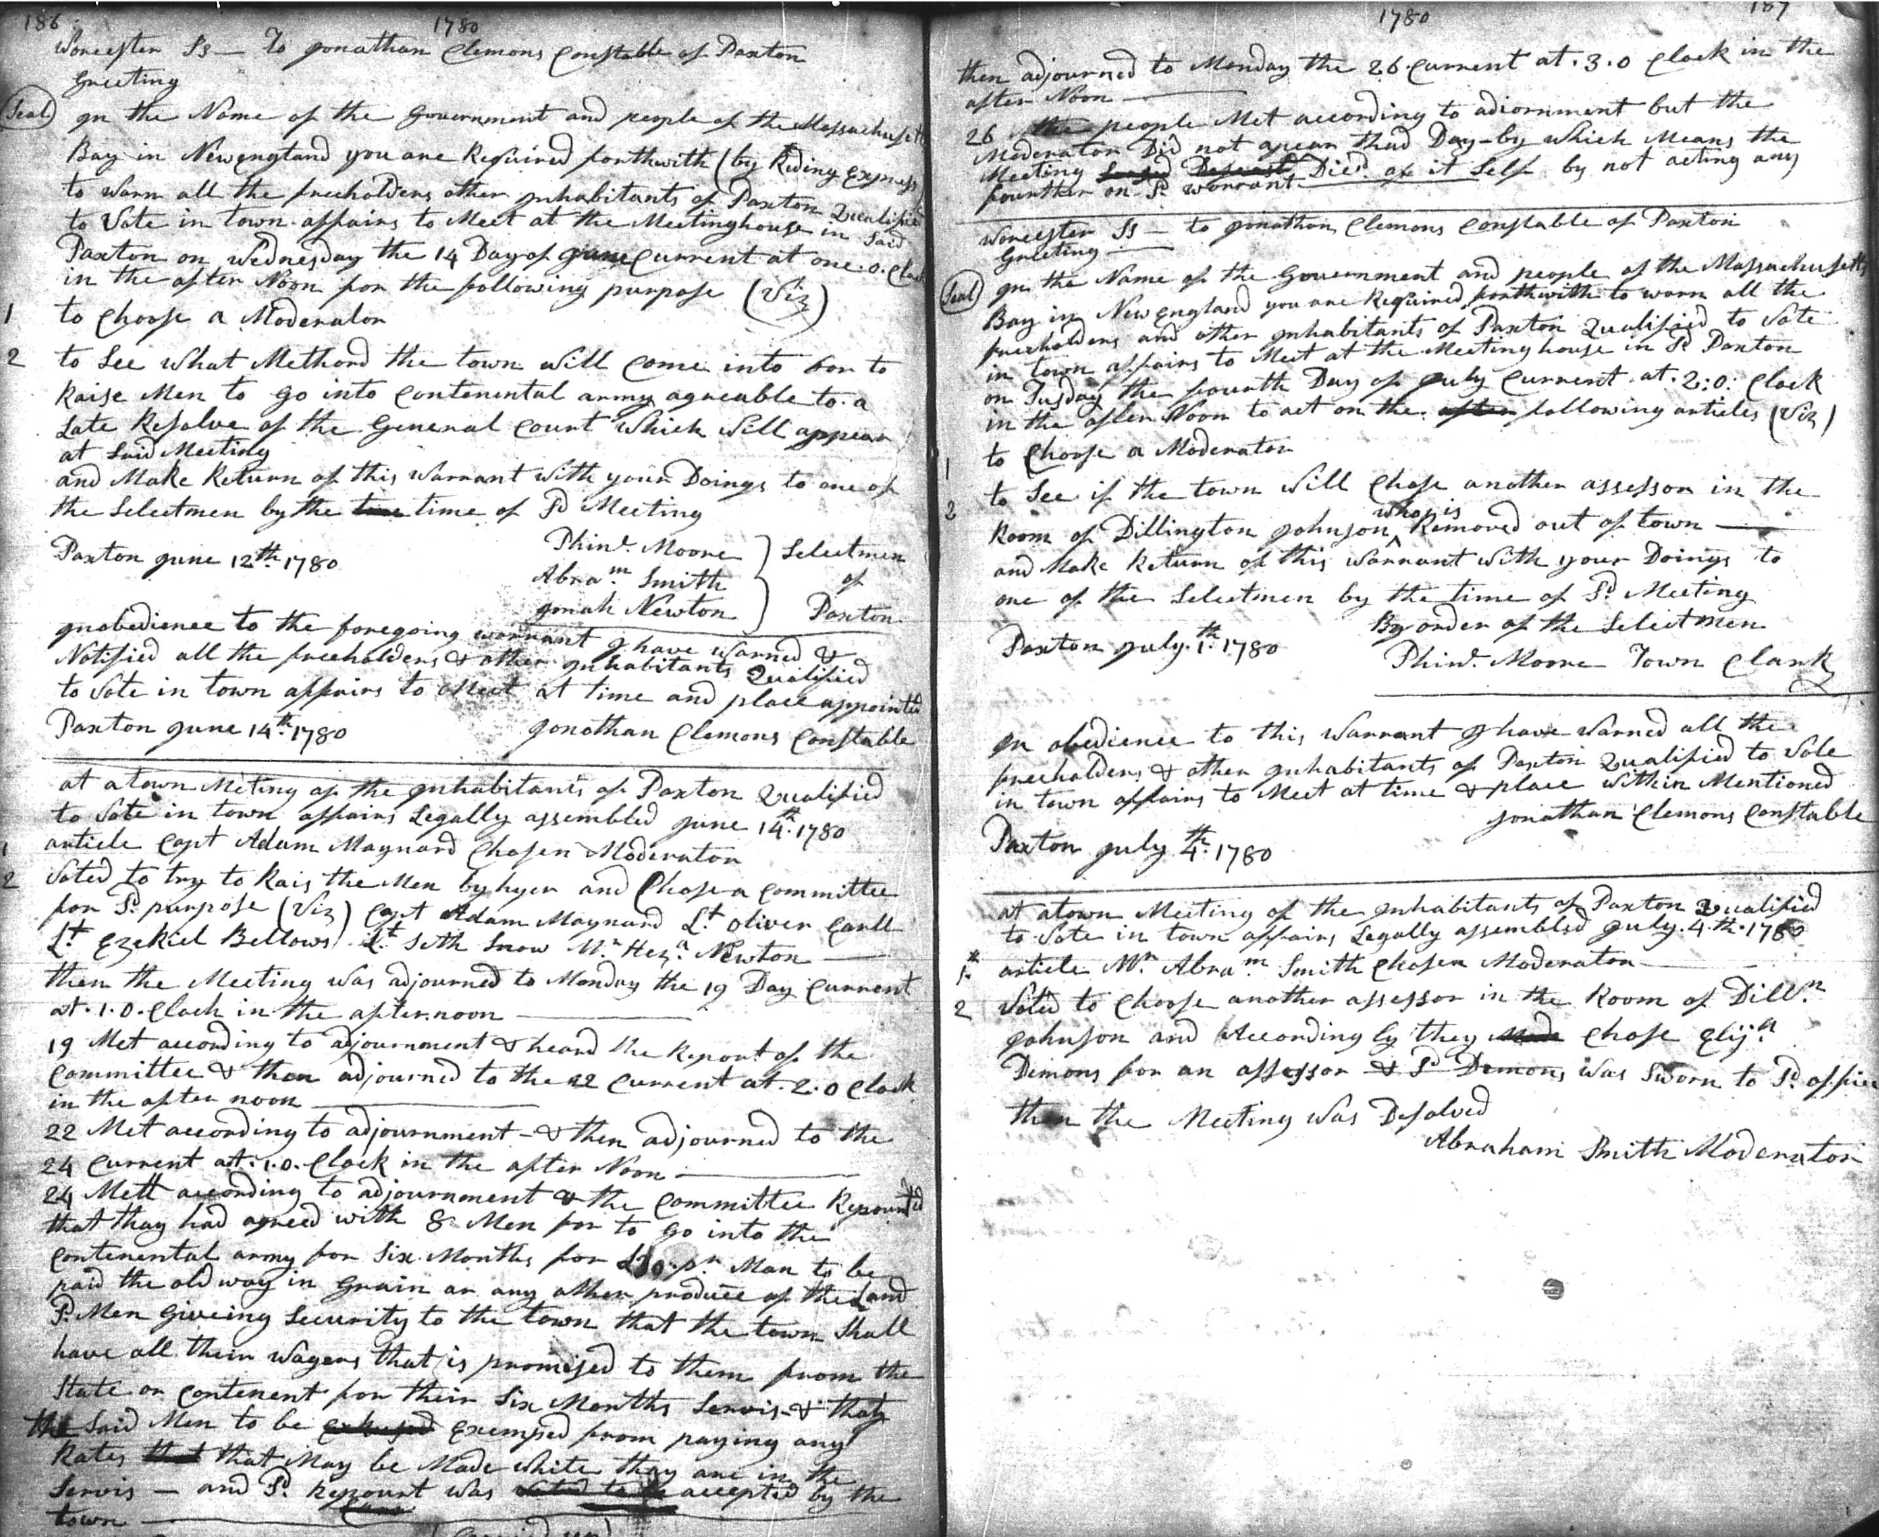 186
1780
Worcester Ss — To Jonathan Clemons Constable of Paxton
Greeting
(Seal) In the Name of the Government and people of the Massachusetts
Bay in Newengland you are Required forthwith (by Riding Express)
to warn all the freeholders other Inhabitants of Paxton Qualified
to Vote in town affairs to Meet at the Meetinghouse in Said
Paxton on Wednesday the 14 Day of June Current at one.o.Clock
in the after Noon for the following purpose (Viz)
1 to Choose a Moderator
2 to See what Methord the town will come into for to
Raise Men to go into Contenental army agreable to a
Late Resolve of the General Court which will appear
at Said Meeting
and Make Return of this Warrant with your Doings to one of
the Selectmen by the time time of Sd Meeting
Paxton June 12th 1780
Phins. Moore } Selectmen
Abram Smith } of
Jonah Newton } Paxton
Inobedience to the foregoing warrant I have warned &
Notified all the freeholders & other Inhabitants Qualified
to Vote in town affairs to Meet at time and place appointed
Paxton June 14th. 1780 Jonathan Clemons Constable
at atown Meting of the Inhabitants of Paxton Qualified
to Vote in town affairs Legally assembled June 14th. 1780
1 article Capt Adam Maynard Chosen Moderator
2 Voted to try to Rais the Men by hyer and Chose a Committee
for Sd purpose (Viz) Capt Adam Maynard Lt. Oliver Earll
Lt Ezekiel Bellows Lt Seth Snow Mr Heza. Newton —
then the Meeting was adjourned to Monday the 19 Day Current
at.1.0.Clock in the after noon —
19 Met according to adjournment & heard the Report of the
Committee & then adjourned to the 22 Current at.2.0 Clock
in the after noon —
22 Met according to adjournment - & then adjourned to the
24 Current at.1.0.Clock in the after Noon —
24 Mett according to adjournment & the Committee Reported
that thay had agreed with 8 Men for to go into the
Contenental army for Six Months for pr Man to be
paid the old way in Grain or any other produce of the Land
Sd Men giveing Security to the town that the town Shall
have all their Wagers that is promised to them from the
State or Contenent for their Six Months Servis - & that
the Said Men to be Exempted from paying any
Rates that that May be Made while they are in the
Servis — and Sd Repourt was accepted by the
town —
(Carried up)
187
1780
then adjourned to Monday the 26 Current at.3.0 Clock in the
after Noon —
26 the people Met according to adiornment but the
Moderator Did not apear thad Day - by which Means the
Meeting Died of it Self by not acting any
fourther on Sd warrant
Worcester Ss — to Jonathan Clemons Constable of Paxton
Greeting —
(Seal) In the Name of the Government and people of the Massachusetts
Bay in New England you are Required forthwith to warn all the
freeholders and other Inhabitants of Paxton Qualified to Vote
in town affairs to Meet at the Meeting house in Sd Paxton
on Tusday the fourth Day of July Current.at.2:0: Clock
in the after Noon to act on the after following articles (Viz)
1 to Choose a Moderator
2 to See if the town will Chose another assessor in the
Room of Dillington Johnson who is Removed out of town —
and Make Return of this Warrant with your Doings to
one of the Selectmen by the time of Sd Meeting
By order of the Selectmen
Paxton July.1th. 1780 Phins. Moore Town Clark
In obedience to this Warrant I have Warned all the
freeholders & other Inhabitants of Paxton Qualified to Vote
in town affairs to Meet at time & place within Mentioned
Jonathan Clemons Constable
Paxton July 4th. 1780
at atown Meeting of the Inhabitants of Paxton Qualified
to Vote in town affairs Legally assembled July.4th.1780
1 article Mr Abram Smith Chosen Moderator —
2 Voted to Choose another assessor in the Room of Dilln
Johnson and According ly they Made Chose Elija
Demons for an assessor & Sd Demons was Sworn to Sd office
then the Meeting was Desolved
Abraham Smith Moderator